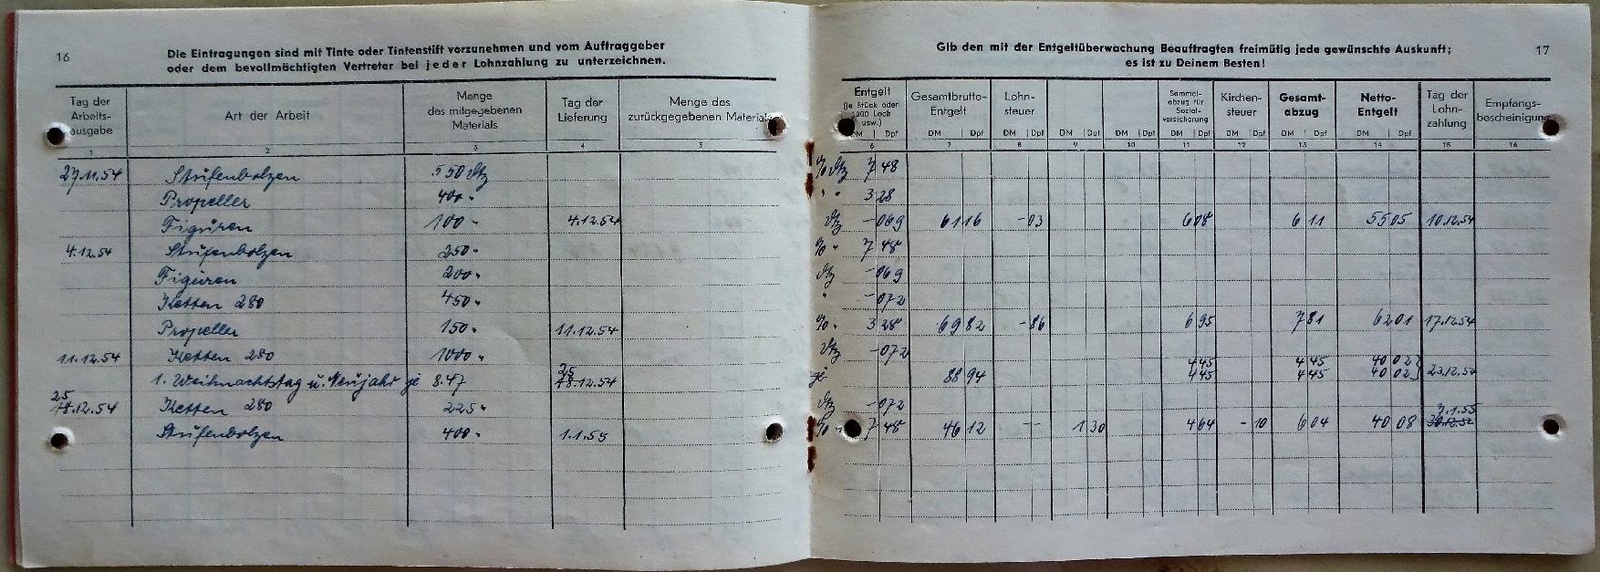 16
Die Eintragungen sind mit Tinte oder Tintenstift vorzunehmen und vom Auftraggeber
oder dem bevollmächtigten Vertreter bei jeder Lohnzahlung zu unterzeichnen.
Tag der Arbeits-ausgabe
Art der Arbeit
Menge des mitgegebenen Materials
Tag der Lieferung
Menge des zurückgegebenen Materials
1 2 3 4 5
27.11.54 Streifenbolzen 550 Stz
Propeller 400 "
Figuren 100 " 4.12.54
4.12.54 Streifenbolzen 250 "
Figuren 200 "
Ketten 280 450 "
Propeller 150 " 11.12.54
11.12.54 Ketten 280 1000 "
1. Weihnachtstag u. Neujahr je 8.47 25 18.12.54
25
18.12.54 Ketten 280 225 "
Streifenbolzen 400 " 1.1.55
Gib den mit der Entgeltüberwachung Beauftragten freimütig jede gewünschte Auskunft;
es ist zu Deinem Besten!
17
Entgelt (je Stück oder 1000 Loch usw.)
Gesamtbrutto-Entgelt
Lohn-steuer
Sammel-abzug für Sozial-versicherung
Kirchen-steuer
Gesamt-abzug
Netto-Entgelt
Tag der Lohn-zahlung
Empfangs-bescheinigung
DM Dpf DM Dpf DM Dpf DM Dpf DM Dpf DM Dpf DM Dpf DM Dpf DM Dpf
6 7 8 9 10 11 12 13 14 15 16
% Stz 7 48
" " 3 28
Stz - 069 61 16 - 03 6 08 6 11 55 05 10.12.54
% " 7 48
Stz - 069
" - 072
% " 3 28 69 82 - 86 6 95 7 81 62 01 17.12.54
Stz - 072
4 45 4 45 40 02
je 88 94 4 45 4 45 40 02 23.12.54
Stz - 072
3.1.55
% " 7 48 46 12 -- 1 30 4 64 - 10 6 04 40 08 30.12.54